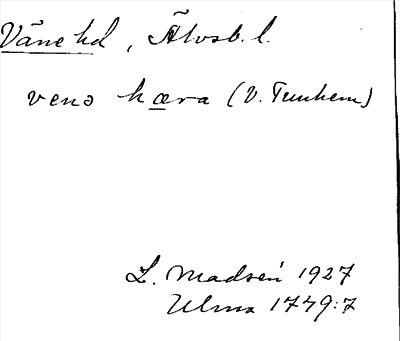 Väne hd, Älvsb. l.
venə hæra (V. Tunhem)
L. Madsén 1927
Ulma 1779:7